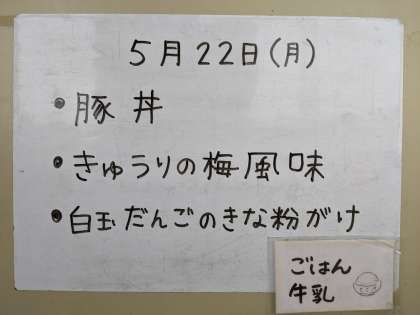 5月22日(月)
•豚丼
•きゅうりの梅風味
•白玉だんごのきな粉がけ
ごはん
牛乳